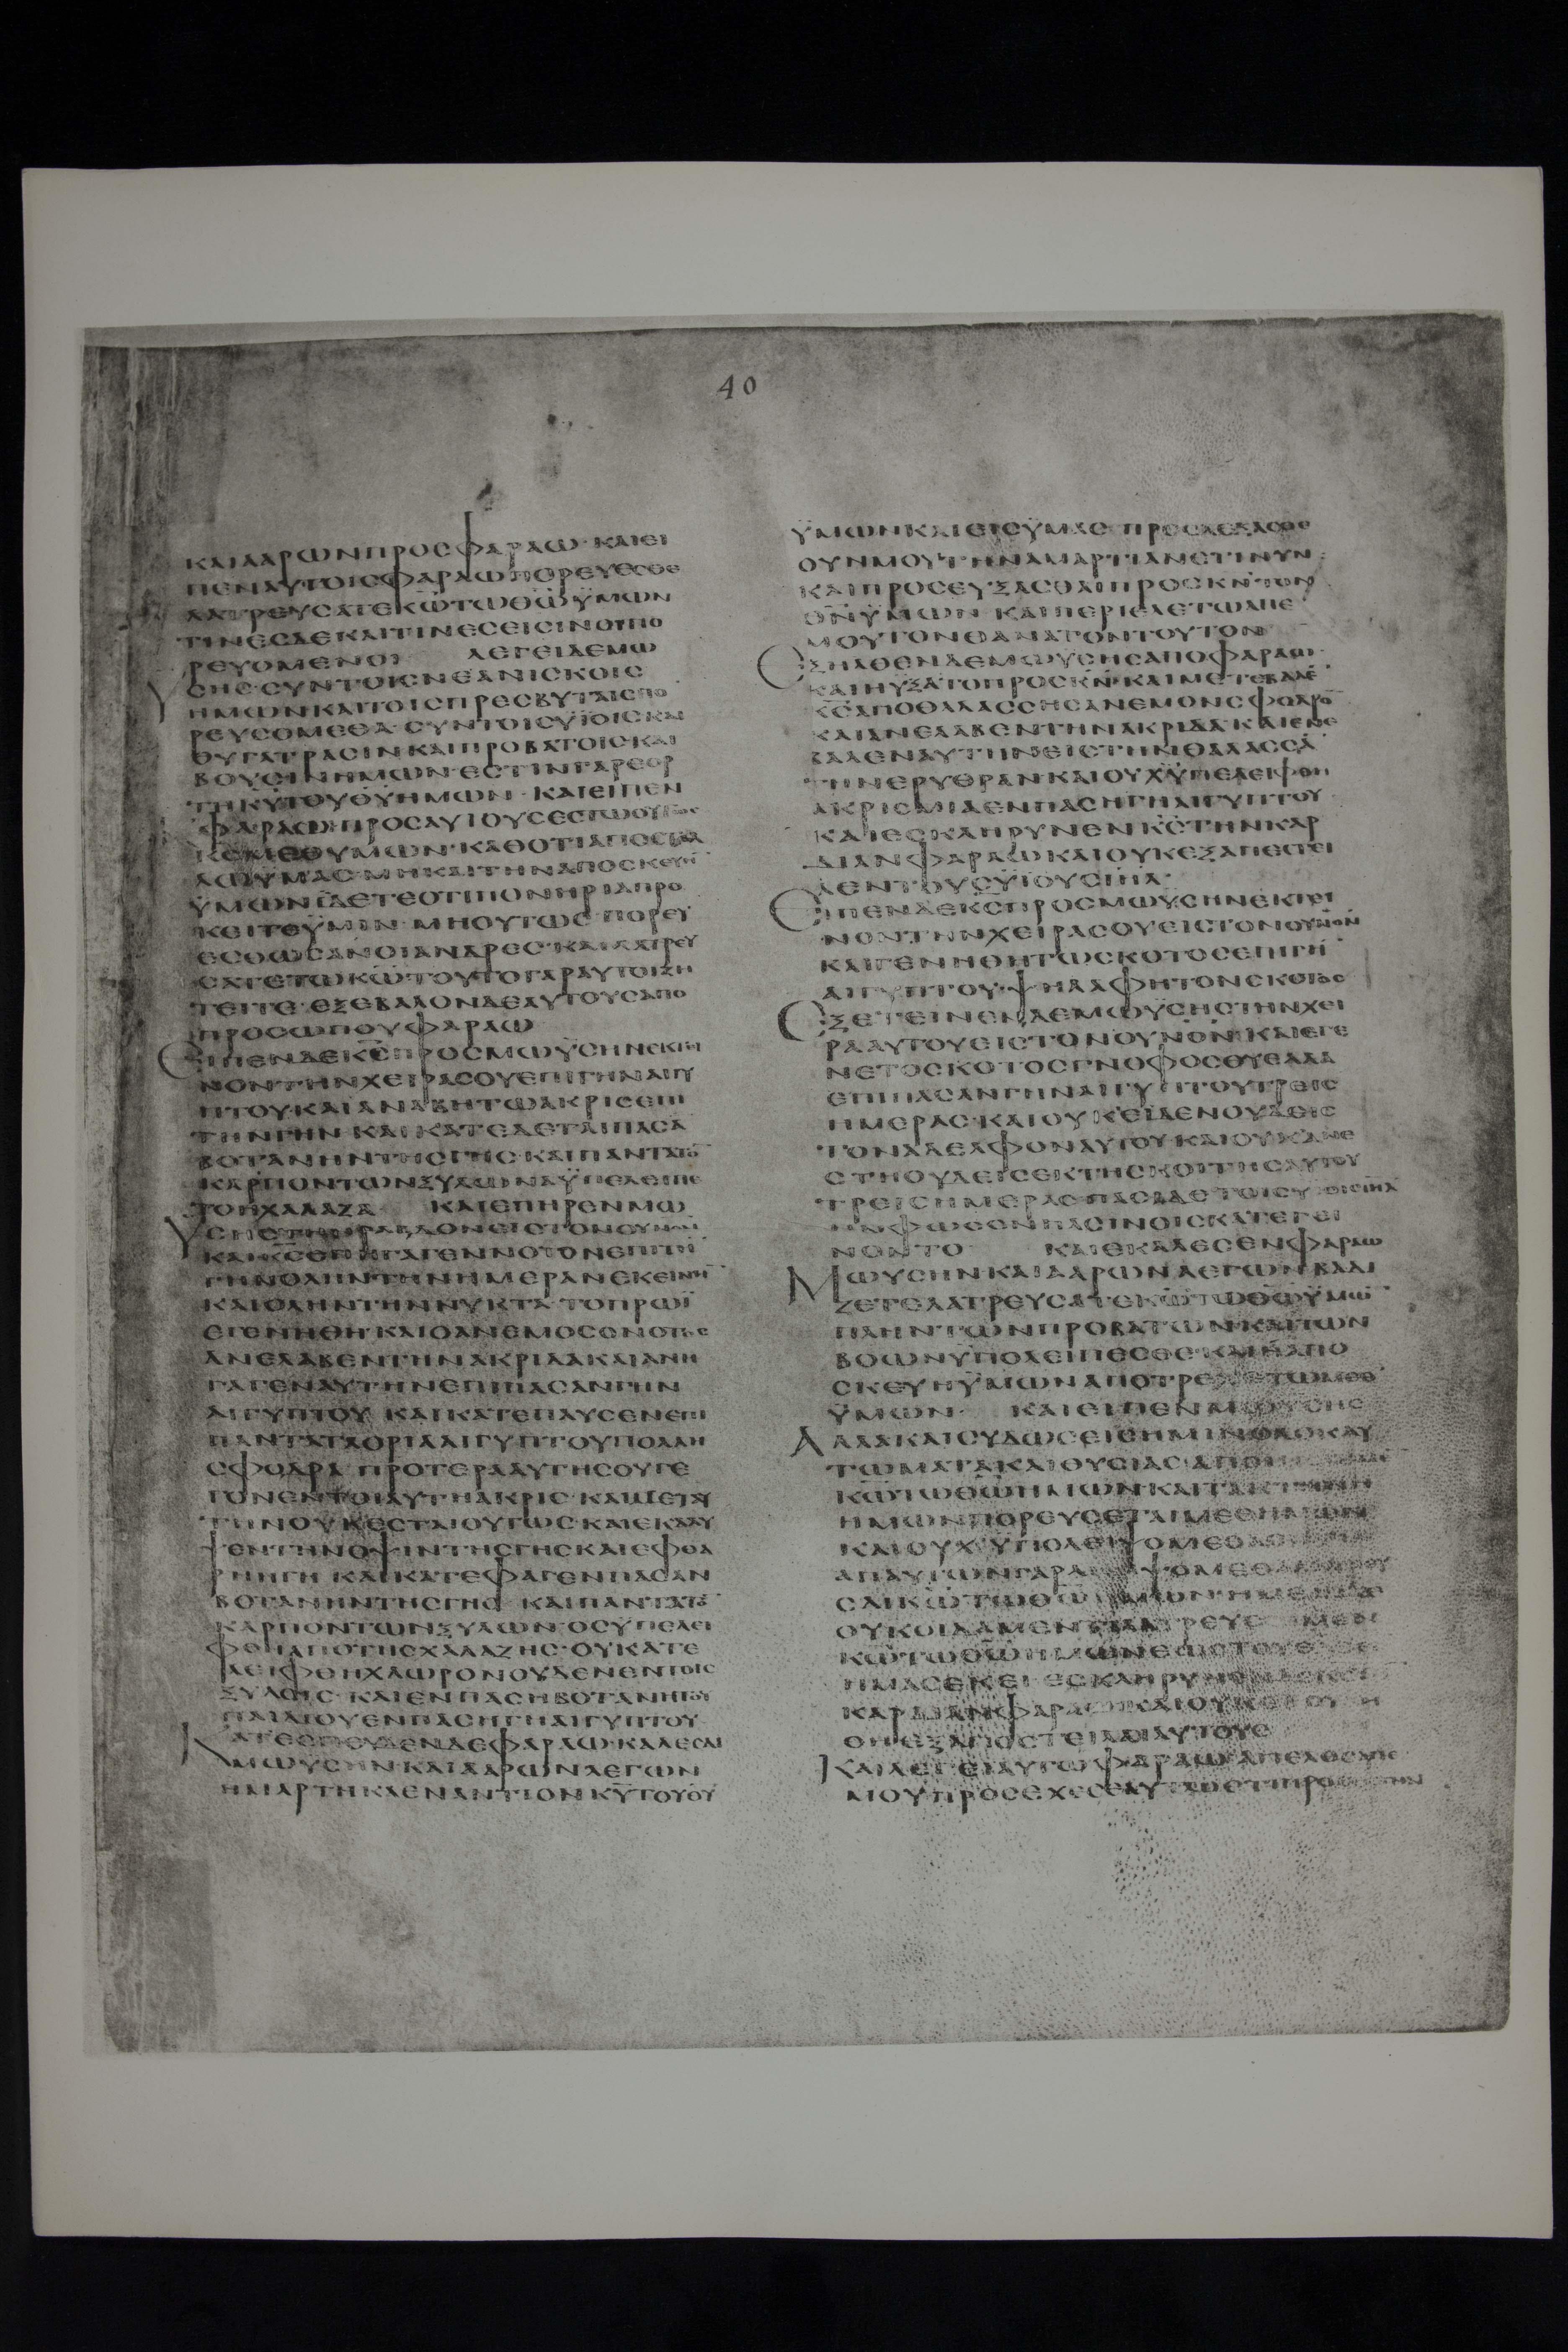 40
ΚΑΙΑΑΡΩΝΠΡΟΣΦΑΡΑΩ·ΚΑΙΕΙ
ΠΕΝΑΥΤΟΙΣΦΑΡΑΩΠΟΡΕΥΕΣΘΕ
ΛΑΤΡΕΥΣΑΤΕΚ̅Ω̅ΤΩΘ̅Ω̅ΫΜΩΝ
ΤΙΝΕΣΔΕΚΑΙΤΙΝΕΣΕΙΣΙΝΟΙΠΟ
ΡΕΥΟΜΕΝΟΙ ΛΕΓΕΙΔΕΜΩ
ΫΣΗΣ·ΣΥΝΤΟΙΣΝΕΑΝΙΣΚΟΙΣ
ΗΜΩΝΚΑΙΤΟΙΣΠΡΕΣΒΥΤΑΙΣΠΟ
ΡΕΥΣΟΜΕΘΑ·ΣΥΝΤΟΙΣΥΪΟΙΣΚΑΙ
ΘΥΓΑΤΡΑΣΙΝΚΑΙΠΡΟΒΑΤΟΙΣΚΑΙ
ΒΟΥΣΙΝΗΜΩΝ·ΕΣΤΙΝΓΑΡΕΟΡ
ΤΗΚ̅Υ̅ΤΟΥΘ̅Υ̅ΗΜΩΝ·ΚΑΙΕΙΠΕΝ
ΦΑΡΑΩΠΡΟΣΑΥΤΟΥΣΕΣΤΩΟΥΤΩΣ
Κ̅Σ̅ΜΕΘΥΜΩΝ·ΚΑΘΟΤΙΑΠΟΣΤΕΛ
ΛΩΫΜΑΣ·ΜΗΚΑΙΤΗΝΑΠΟΣΚΕΥΗ̅
ΫΜΩΝΪΔΕΤΕΟΤΙΠΟΝΗΡΙΑΠΡΟ
ΚΕΙΤΑΙΫΜΙΝ·ΜΗΟΥΤΩΣ·ΠΟΡΕΥ
ΕΣΘΩΣΑΝΟΙΑΝΔΡΕΣ·ΚΑΙΛΑΤΡΕΥ
ΣΑΤΕΤΩΚ̅Ω̅ΤΟΥΤΟΓΑΡΑΥΤΟΙΖΗ
ΤΕΙΤΕ·ΕΞΕΒΑΛΟΝΔΕΑΥΤΟΥΣΑΠΟ
ΠΡΟΣΩΠΟΥΦΑΡΑΩ
ΕΙΠΕΝΔΕΚ̅Σ̅ΠΡΟΣΜΩΫΣΗΝΕΚΤΙ
ΝΟΝΤΗΝΧΕΙΡΑΣΟΥΕΠΙΓΗΝΑΙΓΥ
ΠΤΟΥ·ΚΑΙΑΝΑΒΗΤΩΑΚΡΙΣΕΠΙ
ΤΗΝΓΗΝ·ΚΑΙΚΑΤΕΔΕΤΑΙΠΑΣΑ̅
ΒΟΤΑΝΗΝΤΗΣΓΗΣ·ΚΑΙΠΑΝΤΑΤΟ̅
ΚΑΡΠΟΝΤΩΝΞΥΛΩΝΑΫΠΕΛΕΙΠΕ
ΤΟΗΧΑΛΑΖΑ ΚΑΙΕΠΗΡΕΝΜΩ
ΫΣΗΣΤΗΝΡΑΒΔΟΝΕΙΣΤΟΝΟΥΝΟΝ
ΚΑΙΚ̅Σ̅ΕΠΗΓΑΓΕΝΝΟΤΟΝΕΠΙΤΗ̅
ΓΗΝΟΛΗΝΤΗΝΗΜΕΡΑΝΕΚΕΙΝΗ̅
ΚΑΙΟΛΗΝΤΗΝΝΥΚΤΑ·ΤΟΠΡΩΪ
ΕΓΕΝΗΘΗ·ΚΑΙΟΑΝΕΜΟΣΟΝΟΤΟΣ
ΑΝΕΛΑΒΕΝΤΗΝΑΚΡΙΔΑΚΑΙΑΝΗ
ΓΑΓΕΝΑΥΤΗΝΕΠΙΠΑΣΑΝΓΗΝ
ΑΙΓΥΠΤΟΥ ΚΑΙΚΑΤΕΠΑΥΣΕΝΕΠΙ
ΠΑΝΤΑΤΑΟΡΙΑΑΙΓΥΠΤΟΥΠΟΛΛΗ
ΣΦΟΔΡΑ·ΠΡΟΤΕΡΑΑΥΤΗΣΟΥΓΕ
ΓΟΝΕΝΤΟΙΑΥΤΗΑΚΡΙΣ·ΚΑΙΜΕΤΑΥ
ΤΗΝΟΥΚΕΣΤΑΙΟΥΤΩΣ·ΚΑΙΕΚΑΛΥ
ΨΕΝΤΗΝΟΨΙΝΤΗΣΓΗΣΚΑΙΕΦΘΑ
ΡΗΗΓΗ ΚΑΙΚΑΤΕΦΑΓΕΝΠΑΣΑΝ
ΒΟΤΑΝΗΝΤΗΣΓΗΣ ΚΑΙΠΑΝΤΑΤΟ̅
ΚΑΡΠΟΝΤΩΝΞΥΛΩΝ·ΟΣΫΠΕΛΕΙ
ΦΘΗΑΠΟΤΗΣΧΑΛΑΖΗΣ·ΟΥΚΑΤΕ
ΛΕΙΦΘΗΧΛΩΡΟΝΟΥΔΕΝΕΝΤΟΙΣ
ΞΥΛΟΙΣ·ΚΑΙΕΝΠΑΣΗΒΟΤΑΝΗΤΟΥ
ΠΑΙΔΙΟΥΕΝΠΑΣΗΓΗΑΙΓΥΠΤΟΥ
ΚΑΤΕΣΠΕΥΔΕΝΔΕΦΑΡΑΩ·ΚΑΛΕΣΑΙ
ΜΩΥΣΗΝΚΑΙΑΑΡΩΝΛΕΓΩΝ
ΗΜΑΡΤΗΚΑΕΝΑΝΤΙΟΝΚ̅Υ̅ΤΟΥΘ̅Υ̅
ΫΜΩΝΚΑΙΕΙΣΫΜΑΣ·ΠΡΟΣΔΕΞΑΣΘΕ
ΟΥΝΜΟΥΤΗΝΑΜΑΡΤΙΑΝΕΤΙΝΥΝ
ΚΑΙΠΡΟΣΕΥΞΑΣΘΑΙΠΡΟΣΚ̅Ν̅ΤΟΝ
Θ̅Ν̅ΫΜΩΝ ΚΑΙΠΕΡΙΕΛΕΤΩΑΠΕ
ΜΟΥΤΟΝΘΑΝΑΤΟΝΤΟΥΤΟΝ
ΕΞΗΛΘΕΝΔΕΜΩΥΣΗΣΑΠΟΦΑΡΑΩ·
ΚΑΙΗΥΞΑΤΟΠΡΟΣΚ̅Ν̅·ΚΑΙΜΕΤΕΒΑΛΕ̅
Κ̅Σ̅ΑΠΟΘΑΛΑΣΣΗΣΑΝΕΜΟΝΣΦΟΔΡΟ̅
ΚΑΙΑΝΕΛΑΒΕΝΤΗΝΑΚΡΙΔΑ·ΚΑΙΕΝΕ
ΒΑΛΕΝΑΥΤΗΝΕΙΣΤΗΝΘΑΛΑΣΣΑ̅
ΤΗΝΕΡΥΘΡΑΝΚΑΙΟΥΧΫΠΕΛΕΙΦΘΗ
ΑΚΡΙΣΜΙΑΕΝΠΑΣΗΓΗΑΙΓΥΠΤΟΥ
ΚΑΙΕΣΚΛΗΡΥΝΕΝΚ̅Σ̅ΤΗΝΚΑΡ
ΔΙΑΝΦΑΡΑΩΚΑΙΟΥΚΕΞΑΠΕΣΤΕΙ
ΛΕΝΤΟΥΣΫΪΟΥΣΙ̅Η̅Λ̅
ΕΙΠΕΝΔΕΚ̅Σ̅ΠΡΟΣΜΩΫΣΗΝΕΚΤΕΙ
ΝΟΝΤΗΝΧΕΙΡΑΣΟΥΕΙΣΤΟΝΟΥΝΟΝ
ΚΑΙΓΕΝΗΘΗΤΩΣΚΟΤΟΣΕΠΙΓΗ̅
ΑΙΓΥΠΤΟΥ·ΨΗΛΑΦΗΤΟΝΣΚΟΤΟΣ
ΕΞΕΤΕΙΝΕΝΔΕΜΩΥΣΗΣΤΗΝΧΕΙ
ΡΑΑΥΤΟΥΕΙΣΤΟΝΟΥΝΟΝ·ΚΑΙΕΓΕ
ΝΕΤΟΣΚΟΤΟΣΓΝΟΦΟΣΘΥΕΛΛΑ
ΕΠΙΠΑΣΑΝΓΗΝΑΙΓΥΠΤΟΥΤΡΕΙΣ
ΗΜΕΡΑΣ·ΚΑΙΟΥΚΕΙΔΕΝΟΥΔΕΙΣ
ΤΟΝΑΔΕΛΦΟΝΑΥΤΟΥΚΑΙΟΥΚΑΝΕ
ΣΤΗΟΥΔΕΙΣΕΚΤΗΣΚΟΙΤΗΣΑΥΤΟΥ
ΤΡΕΙΣΗΜΕΡΑΣ·ΠΑΣΙΔΕΤΟΙΣΥΙΟΙΣΙ̅Η̅Λ̅
ΗΝΦΩΣΕΝΠΑΣΙΝΟΙΣΚΑΤΕΓΕΙ
ΝΟΝΤΟ ΚΑΙΕΚΑΛΕΣΕΝΦΑΡΑΩ
ΜΩΥΣΗΝΚΑΙΑΑΡΩΝΛΕΓΩΝΒΑΔΙ
ΖΕΤΕΛΑΤΡΕΥΣΑΤΕΚ̅Ω̅ΤΩΘ̅Ω̅ΫΜΩ̅
ΠΛΗΝΤΩΝΠΡΟΒΑΤΩΝΚΑΙΤΩΝ
ΒΟΩΝΫΠΟΛΕΙΠΕΣΘΕ·ΚΑΙΗΑΠΟ
ΣΚΕΥΗΫΜΩΝΑΠΟΤΡΕΧΕΤΩΜΕΘ
ΫΜΩΝ· ΚΑΙΕΙΠΕΝΜΩΥΣΗΣ
ΑΛΛΑΚΑΙΣΥΔΩΣΕΙΣΗΜΙΝΟΛΟΚΑΥ
ΤΩΜΑΤΑΚΑΙΘΥΣΙΑΣ
Κ̅Ω̅ΤΩΘ̅Ω̅ΗΜΩΝΚΑΙΤΑΚΤΗΝΗ
ΗΜΩΝΠΟΡΕΥΣΕΤΑΙΜΕΘΗΜΩΝ
ΚΑΙΟΥΧΫΠΟΛΕΙΨΟΜΕΘΑ
ΑΠΑΥΤΩΝΓΑΡ
ΣΑΙΚ̅Ω̅ΤΩΘ̅Ω̅ΗΜΩΝ·ΗΜΕΙΣΔΕ
ΟΥΚΟΙΔΑΜΕΝΤΙΛΑΤΡΕΥΣ ΜΕΝ
Κ̅Ω̅ΤΩΘ̅Ω̅ΗΜΩΝΕΩΣΤΟΥΕ
ΗΜΑΣΕΚΕΙ·ΕΣΚΛΗΡΥΝΕΝΔΕΚ̅Σ̅
ΚΑΡΔΙΑΝΦΑΡΑΩΚΑΙΟΥΚ
ΘΗΕΞΑΠΟΣΤΕΙΛΑΙΑΥΤΟΥΣ
ΚΑΙΛΕΓΕΙΑΥΤΩΦΑΡΑΩΑΠΕΛΘΕΑΠΕ
ΜΟΥΠΡΟΣΕΧΕΣΕΑΥΤΩΕΤΙΠΡΟΣ